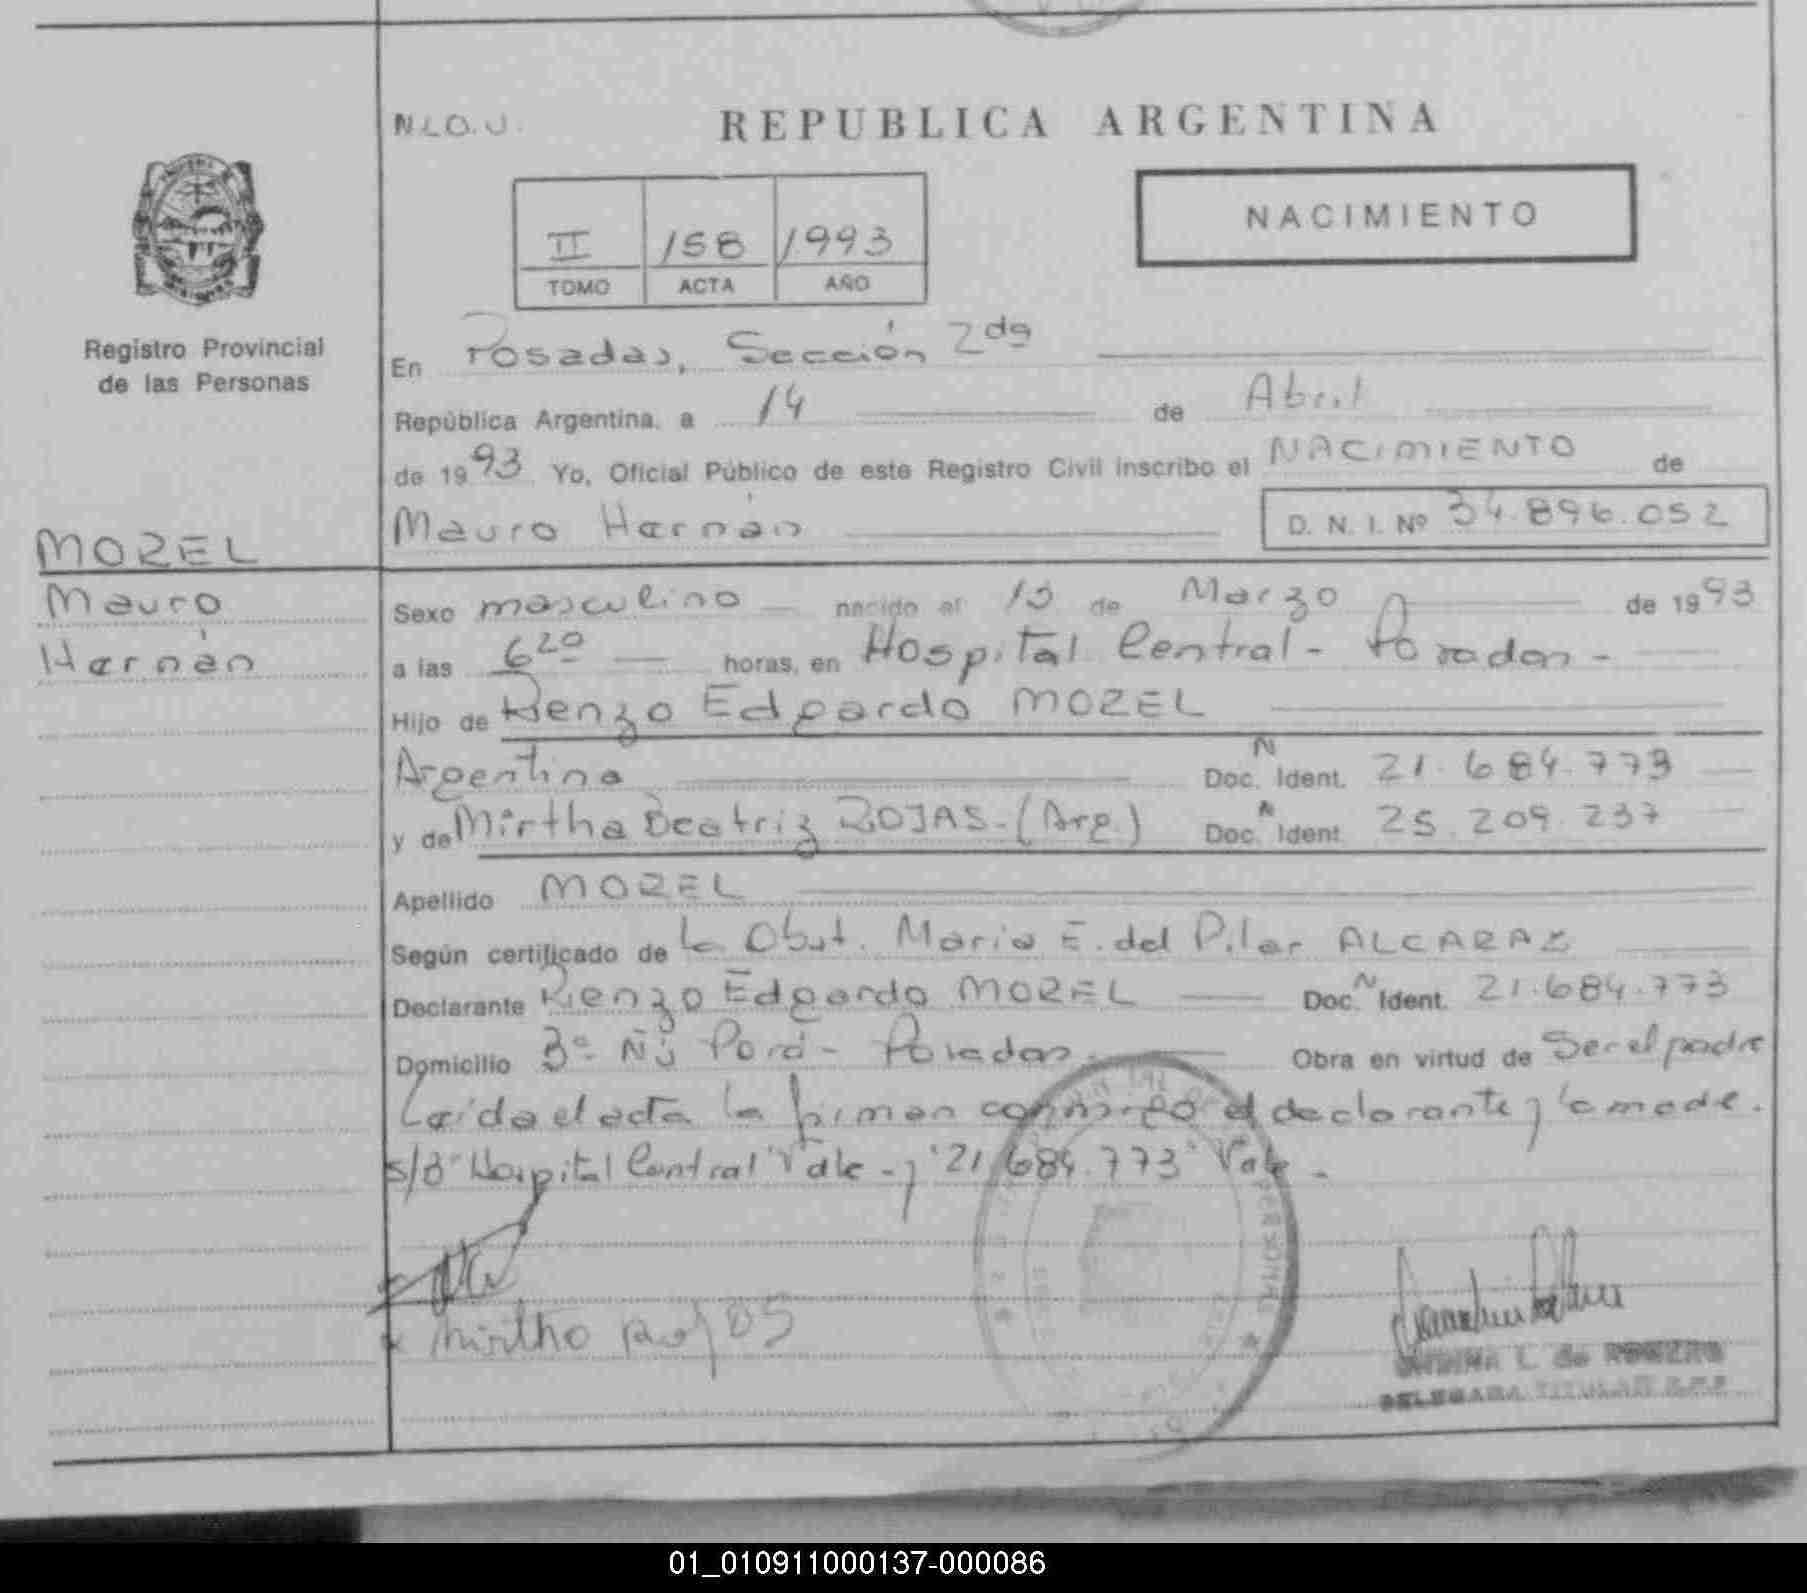 N.L.O.U.
REPUBLICA ARGENTINA
NACIMIENTO
II 158 1993
TOMO ACTA AÑO
Registro Provincial
de las Personas
En Posadas, Sección 2da
República Argentina, a 14 de Abril
de 1993 Yo, Oficial Público de este Registro Civil inscribo el NACIMIENTO de
Mauro Hernán D. N. I. Nº 34.896.052
MOREL
Mauro
Hernán
Sexo masculino nacido el 13 de Marzo de 1993
a las 6 20 horas, en Hospital Central - Posadas -
Hijo de Renzo Edgardo MOREL
Argentino Doc. N Ident. 21.684.773
y de Mirtha Beatriz ROJAS - (Arg.) Doc. N Ident. 25.209.237
Apellido MOREL
Según certificado de la Obst. María E. del Pilar ALCARAZ
Declarante Renzo Edgardo MOREL Doc. N Ident. 21.684.773
Domicilio Bº Ñú Porá - Posadas Obra en virtud de Ser el padre
Leída el acta la firman conmigo el declarante y la madre.
s/b "Hospital Central" Vale - y "21.684.773" Vale -
Mirtha Rojas
L. de ROMERO
DELEGADA TITULAR R.P.P.
01_010911000137-000086